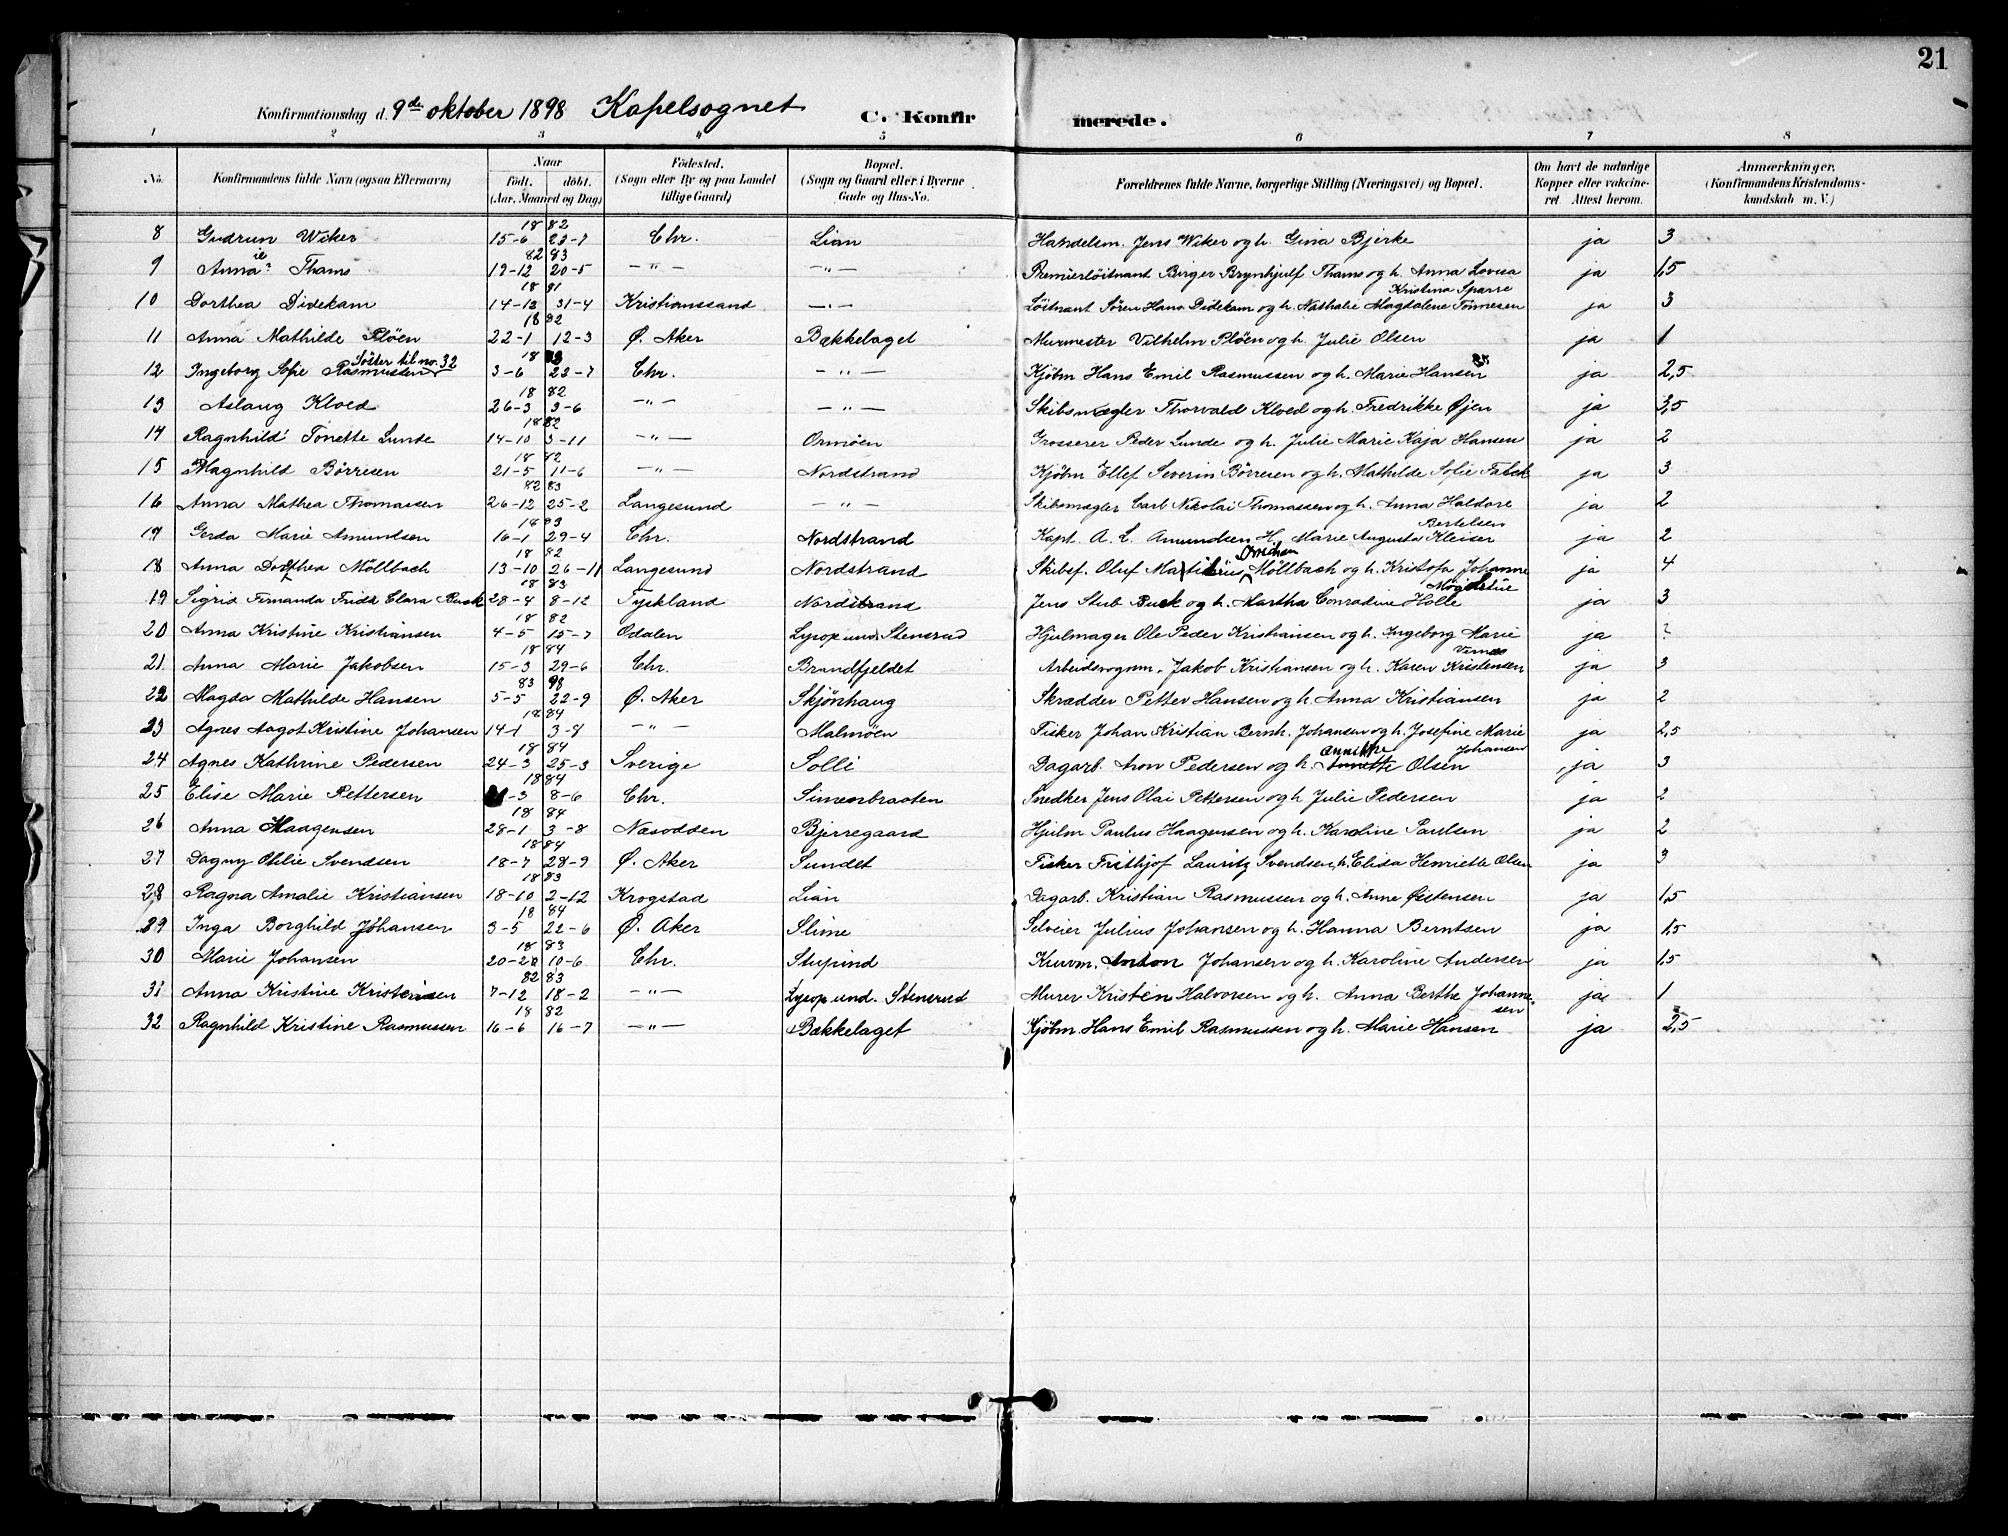 21
Konfirmationsdag d. 9de oktober 1898 Kapelsognet C. Konfirmerede.
1 2 3 " 5 6 7 8
No. Konfirmandens fulde Navn (ogsaa Efternavn) Naar Födt. döbt. (Aar, Maaned og Dag) Födested. (Sogn eller By og paa Landet tillige Gaard) Bopæl. (Sogn og Gaard eller i Byerne Gade og Hus-No. Forældrenes fulde Navne, borgerlige Stilling (Næringsvei) og Bopæl. Om havt de naturlige Kopper eller vakcineret. Attest herom. Anmærkninger. (Konfirmandens Kristendomskundskab m. V.)
18 82
8 Gudrun Wiker 15-6 23-7 Chr. Lian Handelsm. Jens Wiker og h. Gina Bjerke ja 3
82 83
9 Anna Thams 19-12 20-5 -"- -"- Premierløitnant Birger Brynhjulf Thams og h. Anna Lovisa Kristina Sparre ja 1,5
18 81
10 Dorthea Didekam 14-12 31-4 Kristianssand -"- Løitnant Søren Hans Didekam og h. Nathalie Magdalene Tønnesen ja 3
18 82
11 Anna Mathilde Pløen 22-1 12-3 Ø. Aker Bækkelaget Murmester Vilhelm Pløen og h. Julie Olsen ja 1
Söster til no. 32
12 Ingeborg Sofie Rasmussen 3-6 22-7 Chr. -"- Kjøbm Hans Emil Rasmussen og h. Marie Hansen ja 2,5
18 82
13 Aslaug Kloed 26-3 3-6 -"- -"- Skibsmægler Thorvald Kloed og h. Fredrikke Øjen ja 3,5
18 82
14 Ragnhild Tonette Lunde 14-10 3-11 -"- Ormöen Grosserer Peder Lunde og h. Julie Marie Kaja Hansen ja 2
18 82
15 Magnhild Börresen 21-5 11-6 -"- Nordstrand Kjøbm Ellef Severin Börresen og h. Mathilde Sofie Falck ja 3
82 83
16 Anna Mathea Thomassen 26-12 25-2 Langesund -"- Skibsmægler Carl Nikolai Thomassen og h. Anna Haldore Bertelsen ja 2
18 83
17 Gerda Marie Amundsen 16-1 29-4 Chr. Nordstrand Kapt. A. L. Amundsen H. Marie Augusta Kleiser ja 2
18 82
18 Anna Dorthea Möllbach 13-10 26-11 Langesund Nordstrand Skibsf. Oluf Möllbach og h. Kristofa Johanne ja 4
18 83
19 Sigrid Fernanda Frida Clara Busk 28-4 8-12 Tyskland Nordstrand Jens Stub Busk og h. Martha Conradine Holle ja 3
18 82
20 Anna Kristine Kristiansen 4-5 15-7 Odalen Lysop und. Stensrud Hjulmager Ole Peder Kristiansen og h. Ingeborg Marie ja 2
18 84
21 Anna Marie Jakobsen 15-3 29-6 Chr. Brandfjeldet Arbeidsvogm. Jakob Kristiansen og h. Karen Kristensen ja 3
83 98
22 Magda Mathilde Hansen 5-5 22-9 Ø. Aker Skjönhaug Skrædder Petter Hansen og h. Anna Kristiansen ja 2
18 84
23 Agnes Aagot Kristine Johansen 14-1 3-8 -"- Malmöen Fisker Johan Kristian Bernh. Johansen og h. Josefine Marie Johansen ja 2,5
18 84
24 Agnes Kathrine Pedersen 24-3 25-3 Sverige Solli Dagarb. Aron Pedersen og h. Annikke Olsen ja 3
18 84
25 Elise Marie Pettersen -3 8-6 Chr. Simensbraaten Snedker Jens Olai Pettersen og h Julie Pedersen ja 2
18 84
26 Anna Haagensen 28-1 3-8 Næsodden Bjerregaard Hjulm Paulus Haagensen og h. Karoline Paulsen ja 2
18 84
27 Dagny Othlie Svendsen 18-7 28-9 Ø. Aker Sundet Fisker Frithjof Lauritz Svendsen, h. Elisa Henriette Olsen ja 3
18 83
28 Ragna Amalie Kristiansen 18-10 2-12 Krogstad Lian Dagarb. Kristian Rasmussen og h. Anne Østensen ja 1,5
18 84
29 Inga Borghild Johansen 3-5 22-6 Ø. Aker Slime Selveier Julius Johansen og h. Hanna Berntsen ja 1,5
18 83
30 Marie Johansen 20-2 10-6 Chr. Stupind Kurvm. Anton Johansen og h. Karoline Andersen ja 1,5
82 83
31 Anna Kristine Kristensen 7-12 18-2 -"- Lysop und. Stensrud Murer Kristen Halvorsen og h. Anna Berthe Johannesen ja 1
18 82
32 Ragnhild Kristine Rasmussen 16-6 16-7 -"- Bækkelaget Kjøbm. Hans Emil Rasmussen og h. Marie Hansen ja 2,5